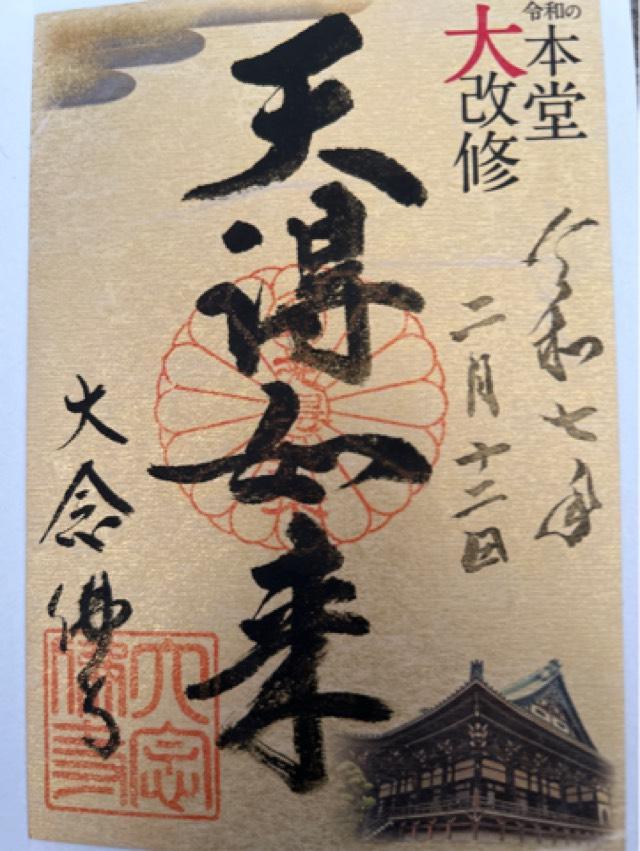 令和の
本堂
大改修
令和七年
二月十二日
天得如来
大念佛寺